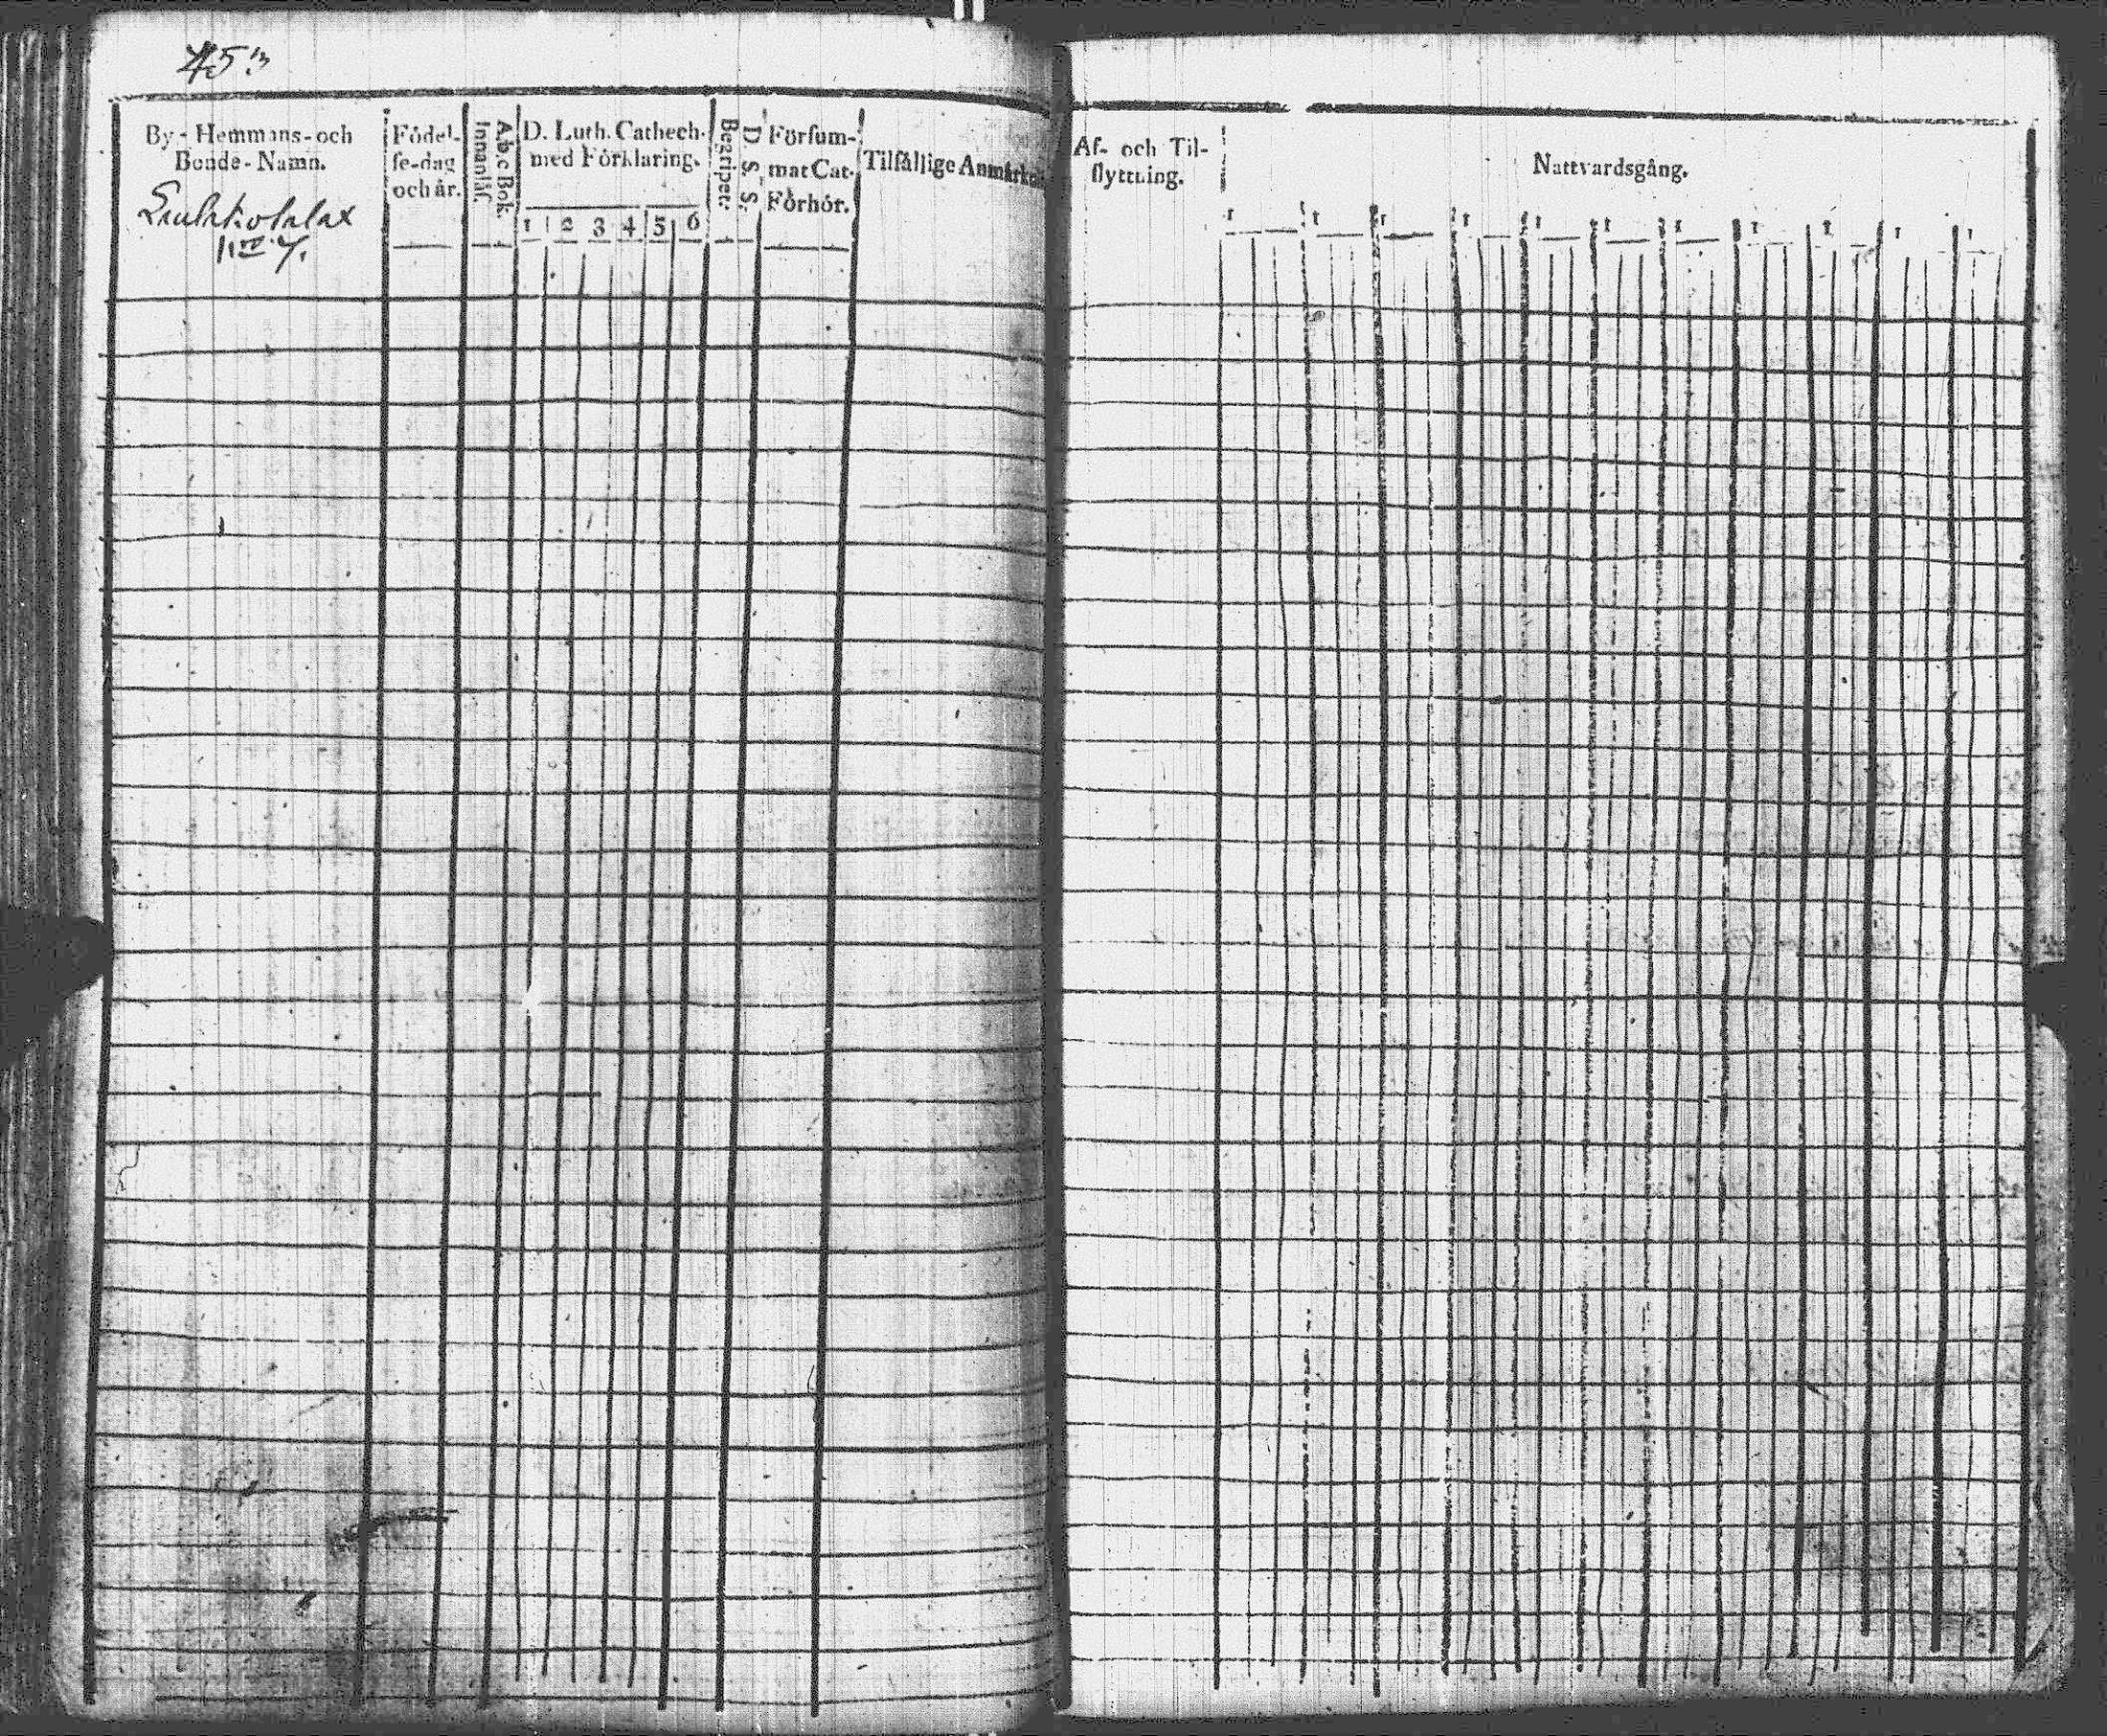 By-Hemmans-och
Bonde-Namn.
Födel-
se-dag
och år.
Abc Bok.
Innanläs.
D. Luth. Cathech.
med Förklaring.
1 2 3 4 5 6
D. S. S.
Begriper.
Försum-
mat Cat.
Förhör.
Tilfällige Anmärkn
Af- och Til-
flyttning.
Nattvardsgång.
1 1 1 1 1 1 1 1 1 1 1